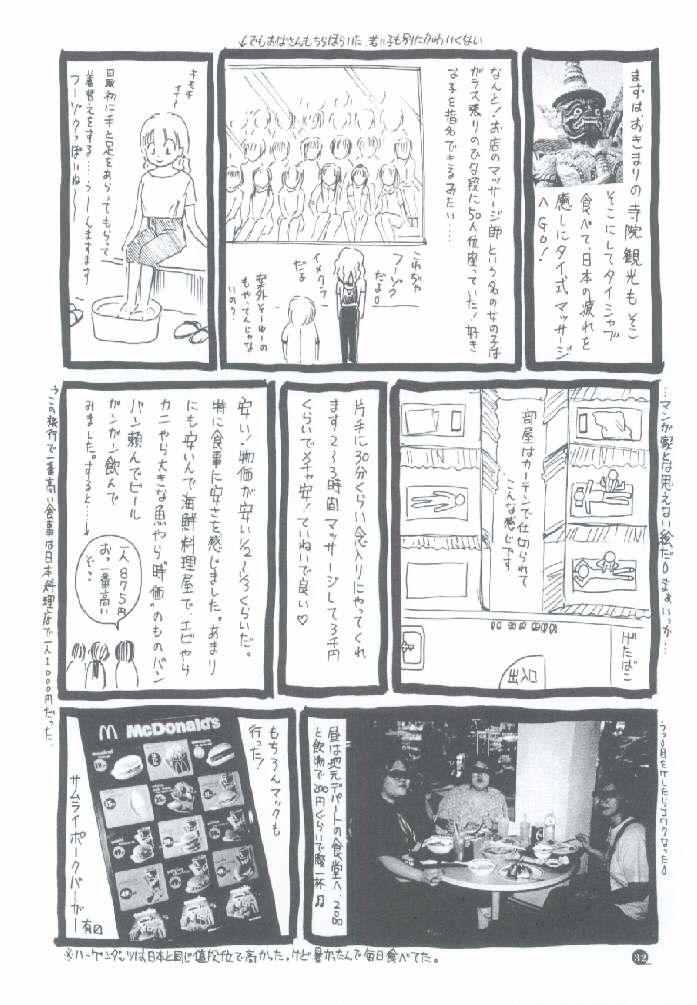 ↓でもおばさんもちらほらいた、若い子も別にかわいくない
まずはおきまりの寺院観光もそこ
そこにしてタイシャブ
食べて、日本の疲れを
癒しにタイ式マッサージ
へGO!
なんと!お店のマッサージ師という名の女の子は
ガラス張りのひな段に50人位座っていた!好き
な子を指名できるみたい…
これじゃ
フーゾク
だよ。
イメクラ
だよ
案外そーゆーの
もやってんじゃな
いの?
キモチ
イイ〜
最初に手と足をあらってもらって
着替えをする…う〜んますます
フーゾクっぽいね〜〜
…マンガ家とは思えない絵だ。まぁいっか…
部屋はカーテンで仕切られて
こんな感じです
げたばこ
出入口
片手に30分くらい念入りにやってくれ
ます2〜3時間マッサージして3千円
くらいでメチャ安!ていねいで良い♡
安い!物価が安い1/2〜1/3くらいだ。
特に食事に安さを感じました。あまり
にも安いんで海鮮料理屋で、エビやら
カニやら大きな魚やら"時価"のものバン
バン頼んでビール
ガンガン飲んで
みました。すると…
一人875円
お。一番高い
ぞっっ
↑この旅行で一番高い食事は日本料理店で一人1000円だった。
昼は地元デパートの食堂へ200
と飲物で200円ぐらいで腹一杯♫
もちろんマックも
行った!
McDonald's
サムライポークバーガー
有り
※ハーゲンダッツは日本と同じ値段位で高かった。けど暑かったんで毎日食べてた。
32